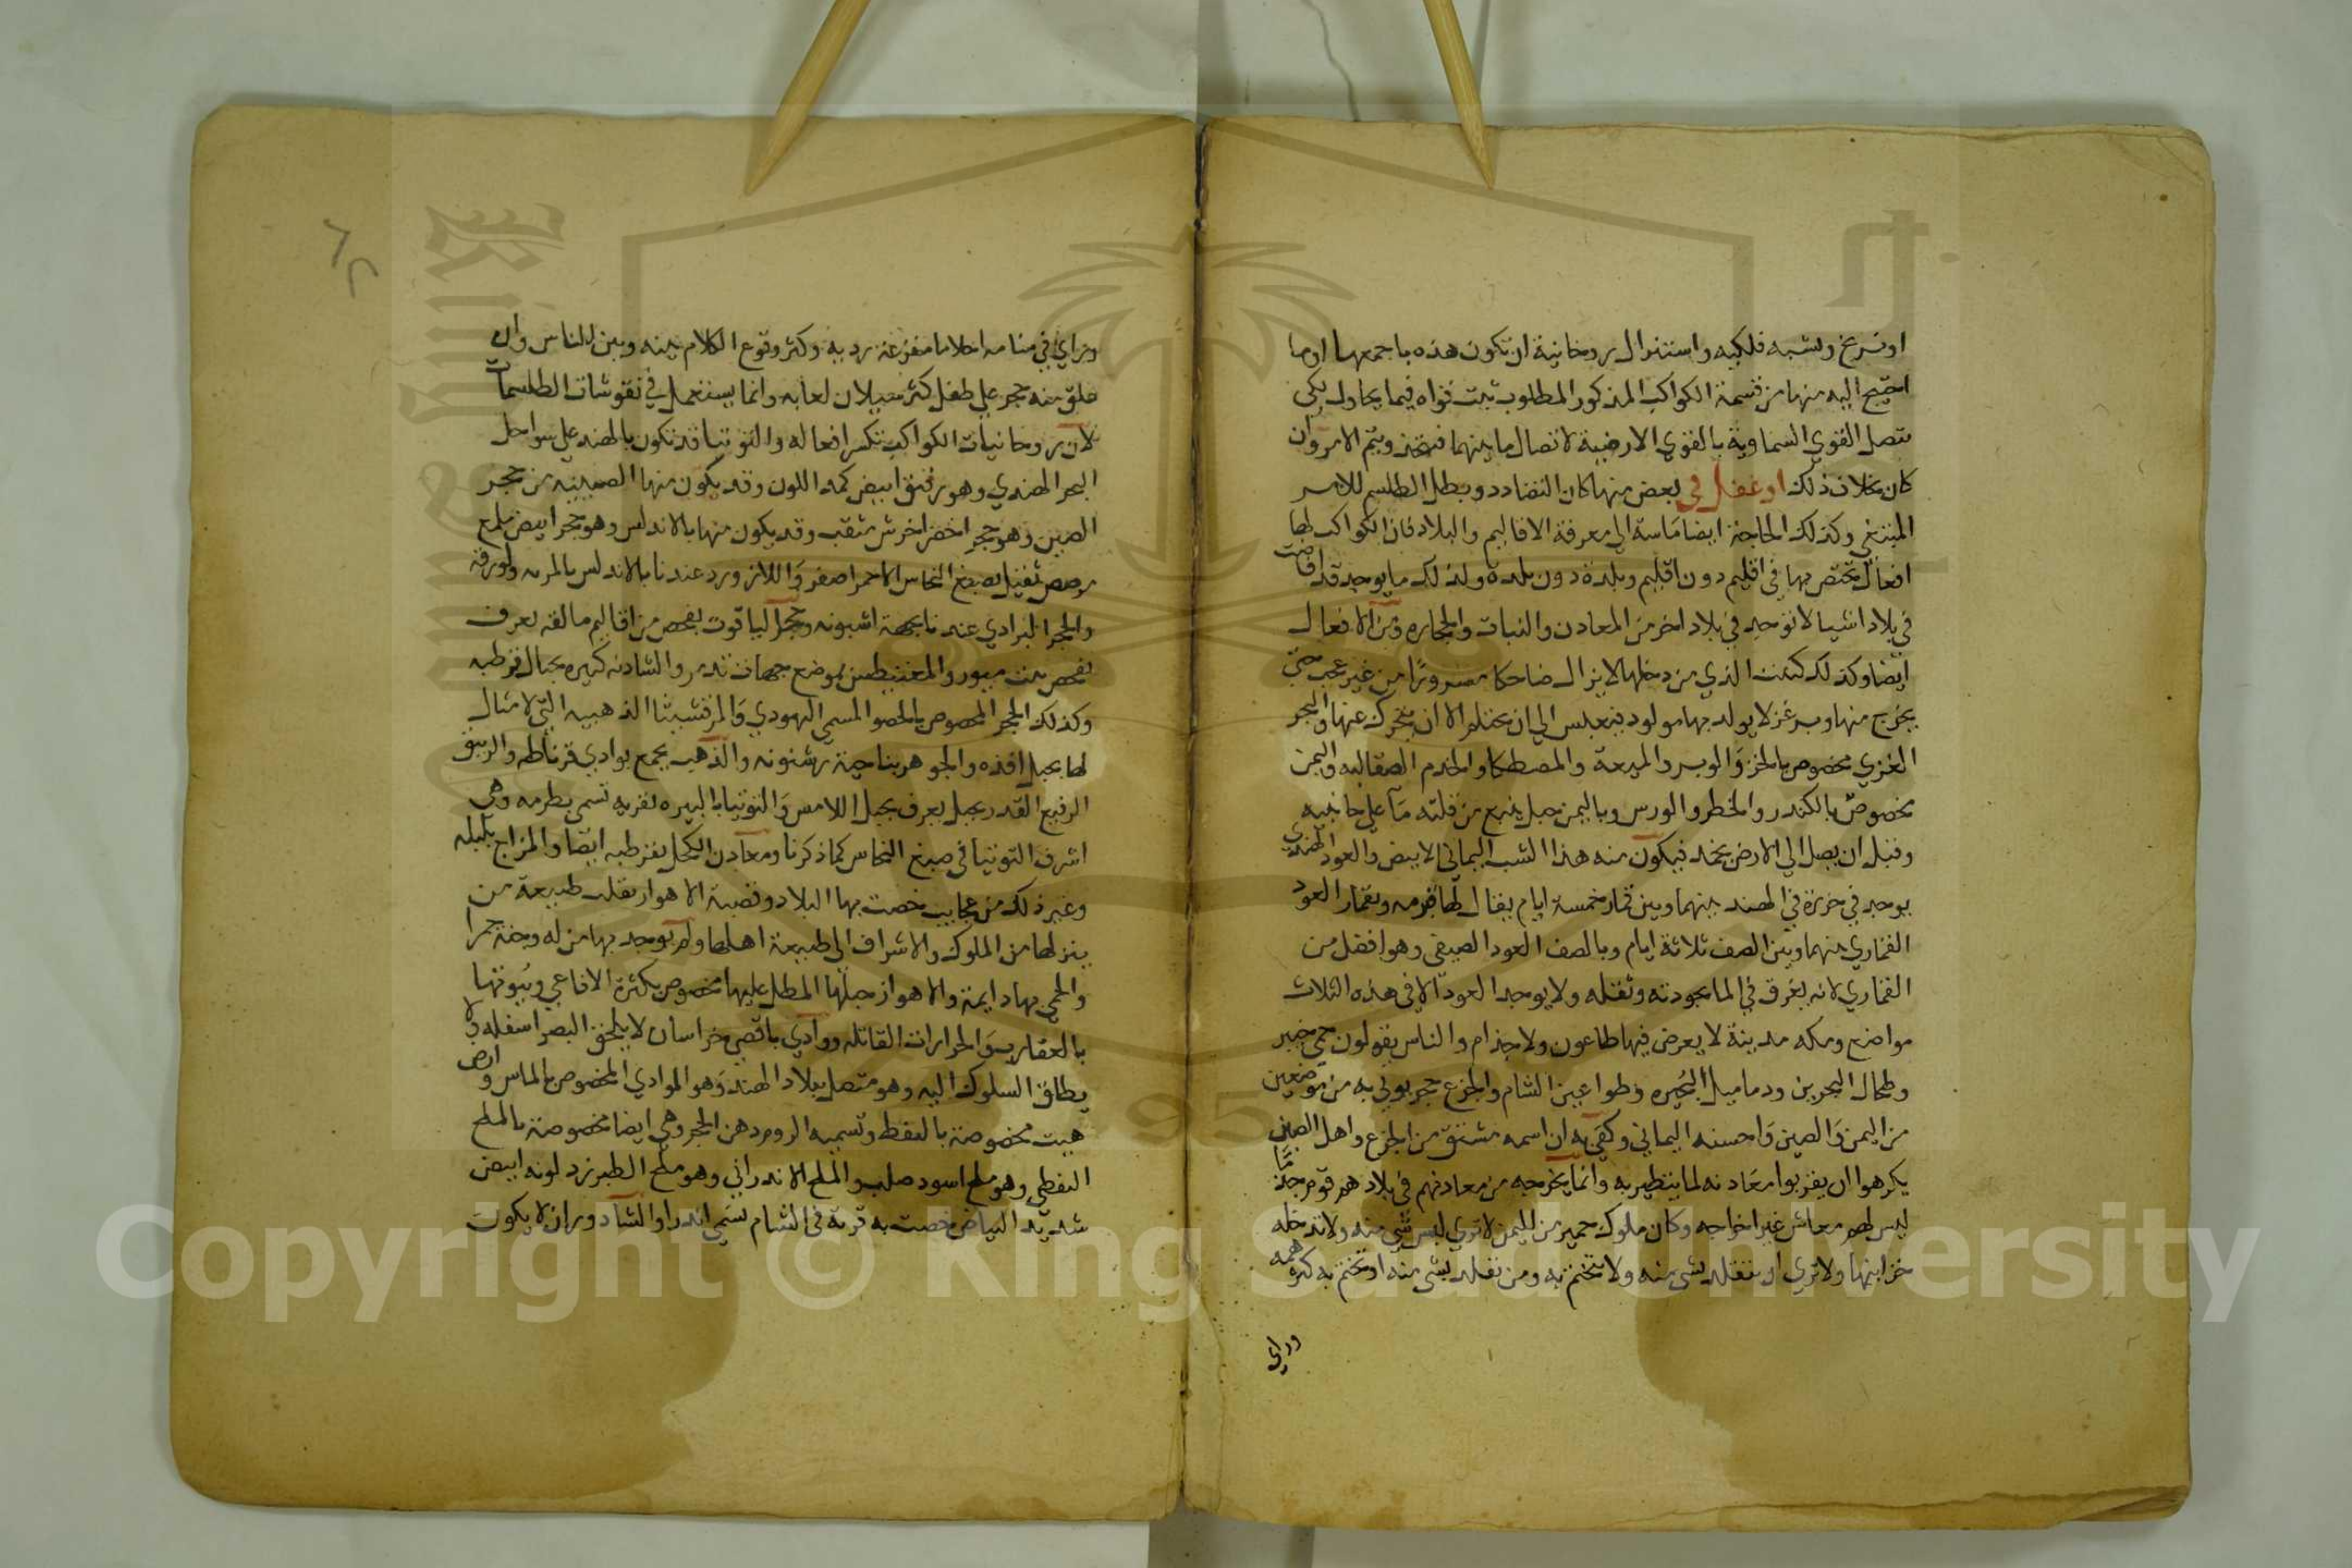 او تبرع ونسبه فلكيه واستنزال روحانية ان تكون هذه باجمعها او ما
احتيج اليه منها من قسمة الكواكب المذكور المطلوب ثبت قواه فيما يحاول بكي
متصل القوي السماوية بالقوي الارضية لاتصال ما بينهما فيتحد ويتم الامر وان
كان بخلاف ذلك او غفل في بعض منها كان التضادد وبطل الطلسم للامر
المبتغي وكذلك الحاجة ايضا ماسة الي معرفة الاقاليم والبلاد فان الكواكب لها
افعال تختص بها في اقليم دون اقليم وبلدة دون بلدة ولذلك ما يوجد قد افاضت
في بلاد اشيا لا توجد في بلاد اخر من المعادن والنبات والحجاره ومن الافعال
ايضا وكذلك كتبت الذي من دخلها لا يزال ضاحكا مسرورا من غير عجب حتي
يخرج منها وبرغز لا يولد بها مولود فيتعلس الي ان يحتلم الا ان يتحرك عنها والبحر
الغزي مخصوص بالخز والوبر والميعة والمصطكا والخدم الصقالبه واليمن
مخصوص بالكندر والخطر والورس وباليمن جبل ينبع من قلته ما علي جانبيه
وقبل ان يصل الي الارض يجمد فيكون منه هذا الشب اليماني الابيض والعود الهندي
يوجد في جزيرة في الهند بينهما وبين قمار خمسة ايام يقال لها قرمه وبقمار العود
القماري بينهما وبين الصف ثلاثة ايام وبالصف العود الصيفي وهو افضل من
القماري لانه يغرق في الما بجودته وثقله ولا يوجد العود الا في هذه الثلاث
مواضع ومكه مدينة لا يعرض فيها طاعون ولا جذام والناس يقولون حمي خيبر
وطحال البحرين ودماميل الجزيره وطواعين الشام والجزع حجر يوتي به من موضعين
من اليمن والصين واحسنه اليماني وكفي به ان اسمه مشتق من الجزع واهل الصين
يكرهوا ان يقربوا معادنه لما يتطير به وانما يخرجه من معادنهم في بلادهم قوم جذما
ليس لهم معاش غير اخراجه وكان ملوك حمير من اليمن لا تري لبس شي منه ولا تدخله
خزاينها ولا تري ان تتقلد بشي منه ولا تتختم به ومن تقلد بشي منه او تختم به كثر همه
وراي
وراي في منامه احلاما مفزعة رديه وكثر وقوع الكلام بينه وبين الناس وان
علق منه حجر علي طفل كثر سيلان لعابه وانما يستعمل في نقوشات الطلسمات
لان روحانيات الكواكب تكسر افعاله والتوتيا قد تكون بالهند علي سواحل
البحر الهندي وهو رقيق ابيض كمد اللون وقد يكون منها الصينيه من حجر
الصين وهو حجر اخضر اخرش مثقب وقد يكون منها بالاندلس وهو حجر ابيض ملمع
رصص ثقيل يصبغ النحاس الاحمر اصفر واللازورد عندنا بالاندلس بالمريه ولورقه
والحجر البرادي عندنا بجهة اشبونه وحجر الياقوت بفحص من اقاليم مالقه يعرف
بفحص بنت ميور والمغنيطس بموضع جهات تدمر والشادنه كثيره بجبال قرطبه
وكذلك الحجر المخصوص بالحصو المسمي اليهودي والمرقشيثا الذهبيه التي لا مثال
لها بجبل افذه والجوهر بناحية بشنونه والذهب يجمع بوادي قرناطه والزيبق
الرفيع القدر بجبل يعرف بجبل اللامس والتوتيا بالبيره بقريه تسمي بطرمه وهي
اشرف التوتيا في صبغ النحاس كما ذكرنا ومعادن الكحل بقرطبه ايضا والمزاج بلبله
وغير ذلك من عجايب خصت بها البلاد وقصبة الاهواز تقلب طبيعة من
ينزلها من الملوك والاشراف الي طبيعة اهلها ولم يوجد بها من له وجنة حمرا
والحمي بها دايمة والاهواز جبلها المطل عليها مخصوص بكثرة الافاعي وبيوتها
بالعقارب والجرارات القاتله ووادي باقصي خراسان لا يلحق البصر اسفله ولا
يطاق السلوك اليه وهو متصل ببلاد الهند وهو الوادي المخصوص بالماس وارض
هيت مخصوصة بالنفط وتسميه الروم دهن الحجر وهي ايضا مخصوصة بالملح
النفطي وهو ملح اسود صلب والملح الاندراني وهو ملح الطبرزد لونه ابيض
شديد البياض خصت به قرية في الشام تسمي اندرا والشادوران لا يكون